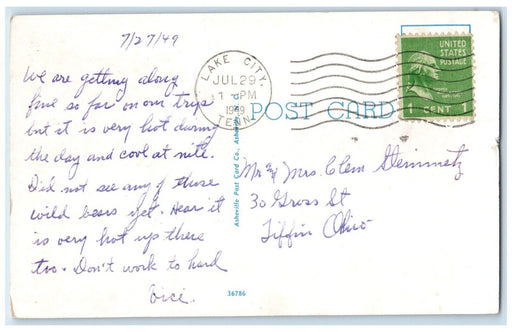 7/27/49
We are getting along
fine so far on our trip
but it is very hot during
the day and cool at nite.
Did not see any of those
wild bears yet. Hear it
is very hot up there
too. Don't work to hard
LAKE CITY,
JUL 29
PM
1949
TENN.
UNITED
STATES
POSTAGE
1 CENT 1
POST CARD
Asheville Post Card Co., Asheville, N. C.
Mr & Mrs. Clem Steinmetz
30 Gross St
Tiffin Ohio
36786